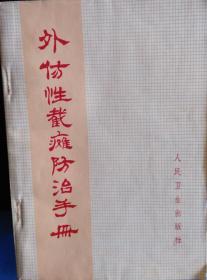 外伤性截瘫防治手册
人民卫生出版社